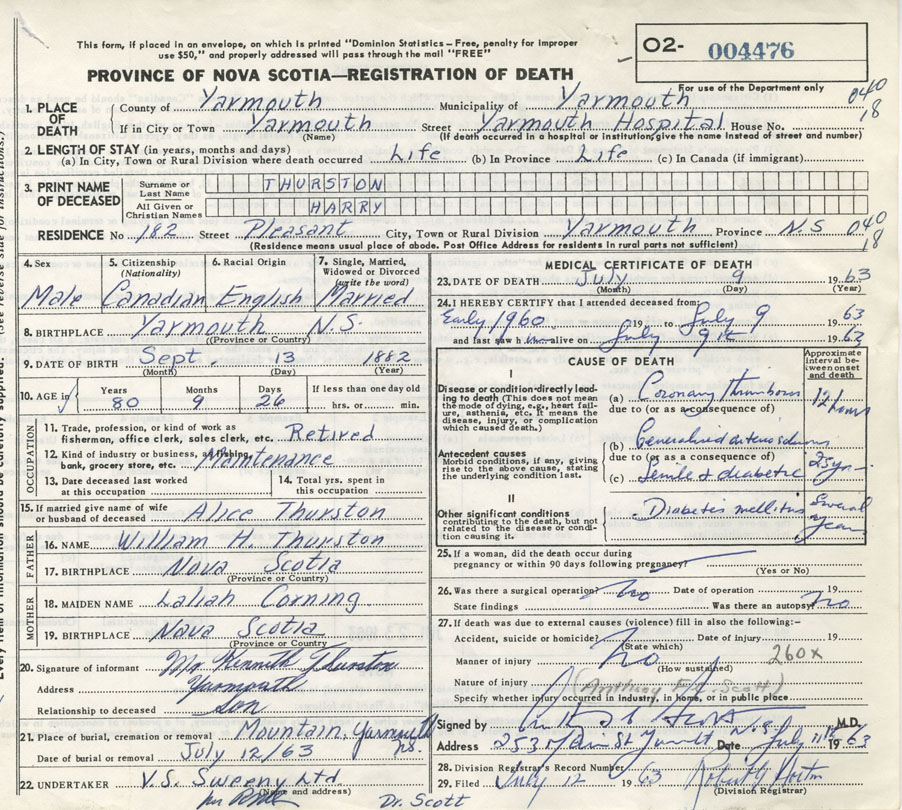 This form, if placed in an envelope, on which is printed "Dominion Statistics—Free, penalty for improper
use $50," and properly addressed will pass through the mail "FREE"
O2- 004476
PROVINCE OF NOVA SCOTIA—REGISTRATION OF DEATH
For use of the Department only
040
18
1. PLACE OF DEATH
County of Yarmouth Municipality of Yarmouth
If in City or Town Yarmouth Street Yarmouth Hospital House No.
(Name) (If death occurred in a hospital or institution, give the name instead of street and number)
2. LENGTH OF STAY (in years, months and days)
(a) In City, Town or Rural Division where death occurred Life (b) In Province Life (c) In Canada (if immigrant)
3. PRINT NAME OF DECEASED
Surname or Last Name THURSTON
All Given or Christian Names HARRY
RESIDENCE No 182 Street Pleasant City, Town or Rural Division Yarmouth Province N.S 040
18
(Residence means usual place of abode. Post Office Address for residents in rural parts not sufficient)
4. Sex 5. Citizenship (Nationality) 6. Racial Origin 7. Single, Married, Widowed or Divorced (write the word)
Male Canadian English Married
8. BIRTHPLACE Yarmouth N.S.
(Province or Country)
9. DATE OF BIRTH Sept. 13 1882
(Month) (Day) (Year)
10. AGE in Years Months Days If less than one day old
80 9 26 hrs. or min.
OCCUPATION
11. Trade, profession, or kind of work as
fisherman, office clerk, sales clerk, etc. Retired
12. Kind of industry or business, as fishing,
bank, grocery store, etc. Maintenance
13. Date deceased last worked
at this occupation
14. Total yrs. spent in
this occupation
15. If married give name of wife
or husband of deceased Alice Thurston
FATHER
16. NAME William H. Thurston
17. BIRTHPLACE Nova Scotia
(Province or Country)
MOTHER
18. MAIDEN NAME Laliah Corning
19. BIRTHPLACE Nova Scotia
(Province or Country)
20. Signature of informant Mr Kenneth Thurston
Address Yarmouth
Relationship to deceased son
21. Place of burial, cremation or removal Mountain, Yarmouth
N.S.
Date of burial or removal July 12/63
22. UNDERTAKER V.S. Sweeny Ltd
(Name and address)
Dr. Scott
MEDICAL CERTIFICATE OF DEATH
23. DATE OF DEATH July 9 1963
(Month) (Day) (Year)
24. I HEREBY CERTIFY that I attended deceased from:
Early 1960 19 to July 9 1963
and last saw him alive on July 9th 1963
CAUSE OF DEATH
Approximate interval between onset and death
I
Disease or condition directly leading to death (This does not mean the mode of dying, e.g., heart failure, asthenia, etc. It means the disease, injury, or complication which caused death.)
(a) Coronary thrombosis 12 hours
due to (or as a consequence of)
Antecedent causes
Morbid conditions, if any, giving rise to the above cause, stating the underlying condition last.
(b) Generalized arteriosclerosis
due to (or as a consequence of)
(c) Senile & diabetic
II
Other significant conditions
contributing to the death, but not related to the disease or condition causing it.
Diabetes mellitus Several years
25. If a woman, did the death occur during
pregnancy or within 90 days following pregnancy?
(Yes or No)
26. Was there a surgical operation? no Date of operation 19
State findings Was there an autopsy? no
27. If death was due to external causes (violence) fill in also the following:-
Accident, suicide or homicide? no Date of injury 19
(State which)
Manner of injury 260x
(How sustained)
Nature of injury (Anthony F.L. Scott)
Specify whether injury occurred in industry, in home, or in public place
Signed by M.D.
Address 253 Main St Yarmouth N.S. Date July 11th 1963
28. Division Registrar's Record Number
29. Filed July 12 1963 Robert J Horton
(Division Registrar)